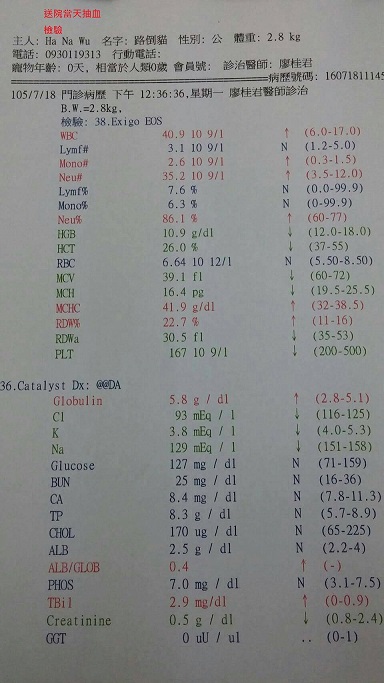 送院當天抽血
檢驗
主人: Ha Na Wu 名字: 路倒貓 性別: 公 體重: 2.8 kg
電話: 0930119313 行動電話:
寵物年齡: 0天, 相當於人類0歲 會員號: 診治醫師: 廖桂君
病歷號碼: 16071811145
105/7/18 門診病歷 下午 12:36:36,星期一 廖桂君醫師診治
B.W.=2.8kg,
檢驗: 38.Exigo EOS
WBC 40.9 10 9/l ↑ (6.0-17.0)
Lymf# 3.1 10 9/l N (1.2-5.0)
Mono# 2.6 10 9/l ↑ (0.3-1.5)
Neu# 35.2 10 9/l ↑ (3.5-12.0)
Lymf% 7.6 % N (0.0-99.9)
Mono% 6.3 % N (0-99.9)
Neu% 86.1 % ↑ (60-77)
HGB 10.9 g/dl ↓ (12.0-18.0)
HCT 26.0 % ↓ (37-55)
RBC 6.64 10 12/l N (5.50-8.50)
MCV 39.1 fl ↓ (60-72)
MCH 16.4 pg ↓ (19.5-25.5)
MCHC 41.9 g/dl ↑ (32-38.5)
RDW% 22.7 % ↑ (11-16)
RDWa 30.5 fl ↓ (35-53)
PLT 167 10 9/l ↓ (200-500)
36.Catalyst Dx: @@DA
Globulin 5.8 g / dl ↑ (2.8-5.1)
Cl 93 mEq / l ↓ (116-125)
K 3.8 mEq / l ↓ (4.0-5.3)
Na 129 mEq / l ↓ (151-158)
Glucose 127 mg / dl N (71-159)
BUN 25 mg / dl N (16-36)
CA 8.4 mg / dl N (7.8-11.3)
TP 8.3 g / dl N (5.7-8.9)
CHOL 170 ug / dl N (65-225)
ALB 2.5 g / dl N (2.2-4)
ALB/GLOB 0.4 ↑ (-)
PHOS 7.0 mg / dl N (3.1-7.5)
TBil 2.9 mg/dl ↑ (0-0.9)
Creatinine 0.5 g / dl ↓ (0.8-2.4)
GGT 0 uU / ul .. (0-1)